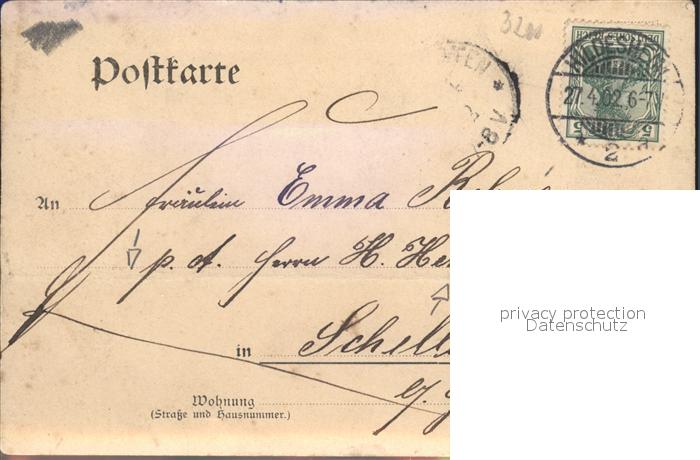 3200
Postkarte
HILDESHEIM
27.4.02.6-7
* 2
5 5
-8V.
An Fräulein Emma
p. A. Herrn H.
in Schell
Wohnung
(Straße und Hausnummer.)
privacy protection
Datenschutz